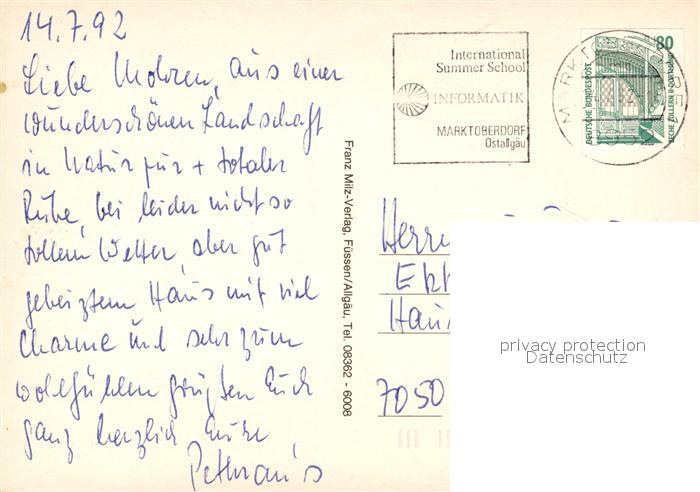 14.7.92
Liebe Mohren, aus einer
wunderschönen Landschaft
in Natur pur + totaler
Ruhe, bei leider nicht so
tollem Wetter, aber gut
geheiztem Haus mit viel
Charme und sehr zum
wohlfühlen grüßen Euch
ganz herzlich Eure
International
Summer School
INFORMATIK
MARKTOBERDORF
Ostallgäu
80
DEUTSCHE BUNDESPOST
Franz Milz-Verlag, Füssen/Allgäu, Tel. 08362 - 6008
7050
privacy protection
Datenschutz